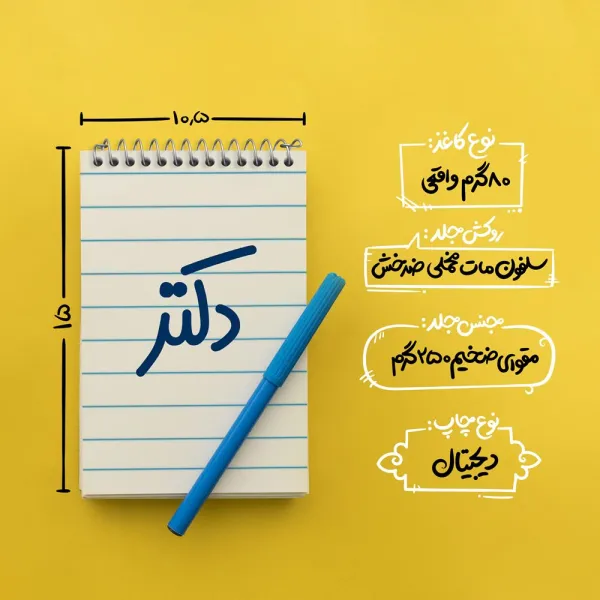 ۱۰٫۵
۱۵
دکتر
نوع کاغذ:
۸۰گرم واقعی
روکش جلد:
سلفون مات مخملی ضدخش
جنس جلد:
مقوای ضخیم ۲۵۰گرم
نوع چاپ:
دیجیتال